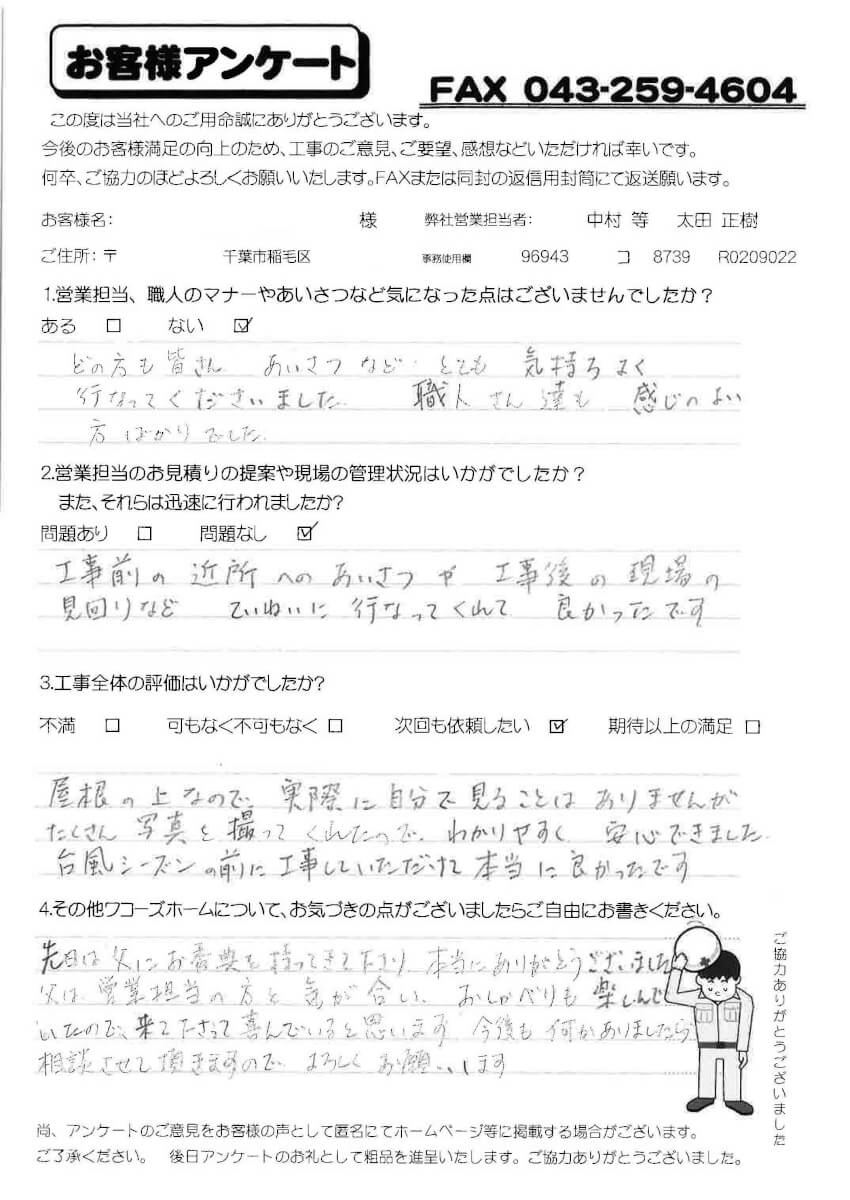 お客様アンケート
FAX 043-259-4604
この度は当社へのご用命誠にありがとうございます。
今後のお客様満足の向上のため、工事のご意見、ご要望、感想などいただければ幸いです。
何卒、ご協力のほどよろしくお願いいたします。FAXまたは同封の返信用封筒にて返送願います。
お客様名: 様 弊社営業担当者: 中村 等 太田 正樹
ご住所:〒 千葉市稲毛区 事務使用欄 96943 コ 8739 R0209022
1.営業担当、職人のマナーやあいさつなど気になった点はございませんでしたか?
ある □ ない ☑
どの方も皆さん あいさつなど とても 気持ちよく
行なってくださいました 職人さん達も 感じのよい
方ばかりでした
2.営業担当のお見積りの提案や現場の管理状況はいかがでしたか?
また、それらは迅速に行われましたか?
問題あり □ 問題なし ☑
工事前の近所へのあいさつや 工事後の現場の
見回りなど ていねいに行なってくれて 良かったです
3.工事全体の評価はいかがでしたか?
不満 □ 可もなく不可もなく □ 次回も依頼したい ☑ 期待以上の満足 □
屋根の上なので、実際に自分で見ることはありませんが
たくさん写真を撮ってくれたので、わかりやすく 安心できました
台風シーズンの前に工事していただけて本当に良かったです
4.その他ワコーズホームについて、お気づきの点がございましたらご自由にお書きください。
先日は父にお香典を持ってきて下さり本当にありがとうございました
父は営業担当の方と気が合い、おしゃべりも楽しんで
いたので、来て下さって喜んでいると思います 今後も何かありましたら
相談させて頂きますので よろしくお願いします
ご協力ありがとうございました
尚、アンケートのご意見をお客様の声として匿名にてホームページ等に掲載する場合がございます。
ご了承ください。 後日アンケートのお礼として粗品を進呈いたします。ご協力ありがとうございました。